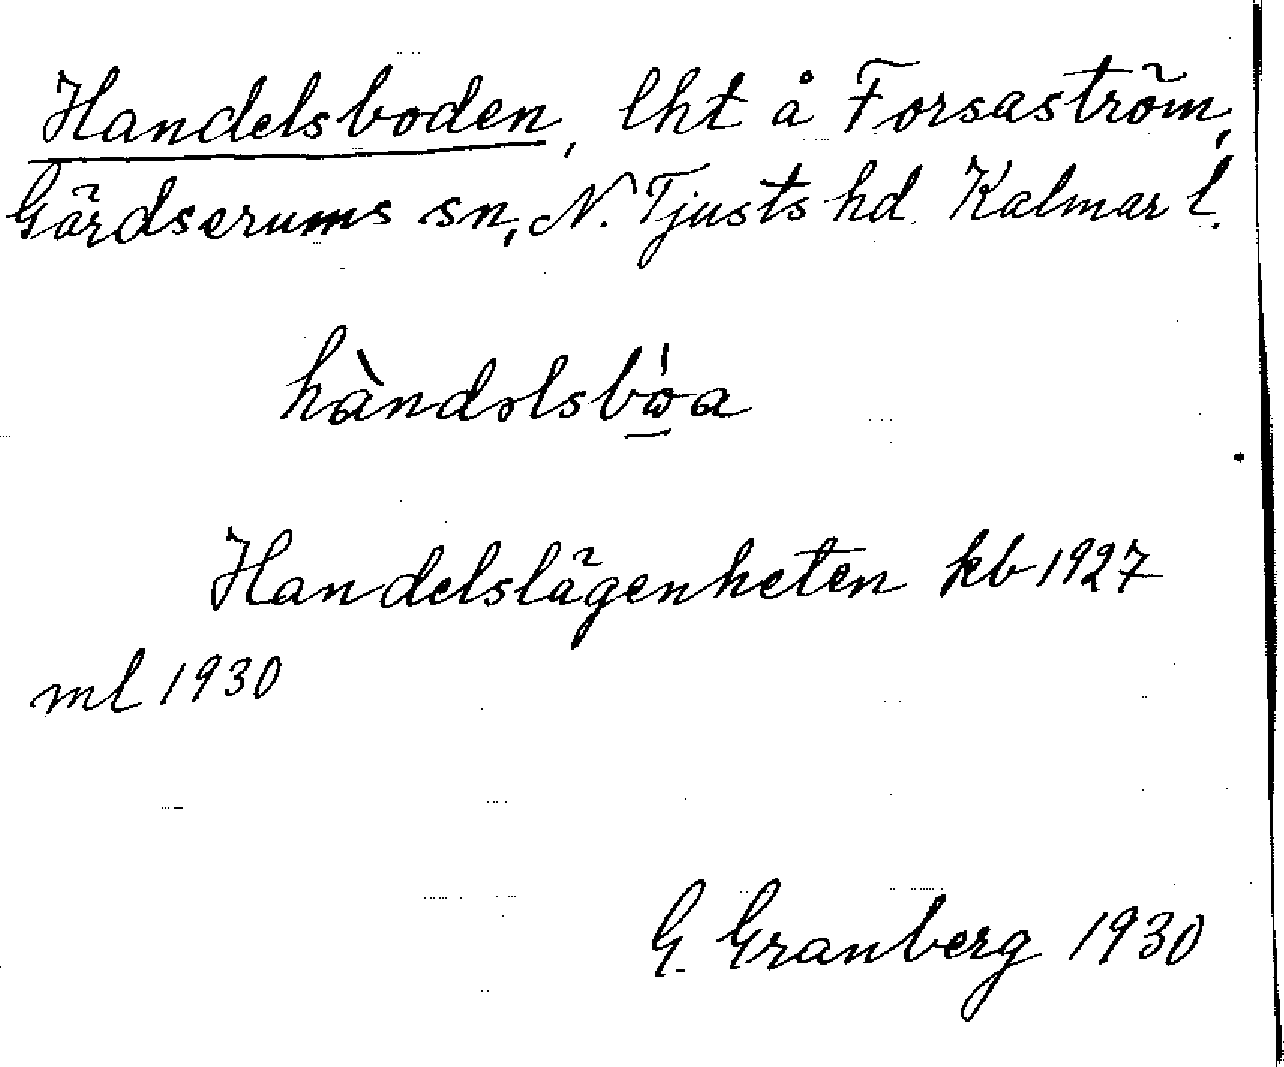 Handelsboden, lht å Forsaström,
Gärdserums sn, N. Tjusts hd. Kalmar l.
hàndəlsbo̱'a
Handelslägenheten kb 1927
ml 1930
G. Granberg 1930